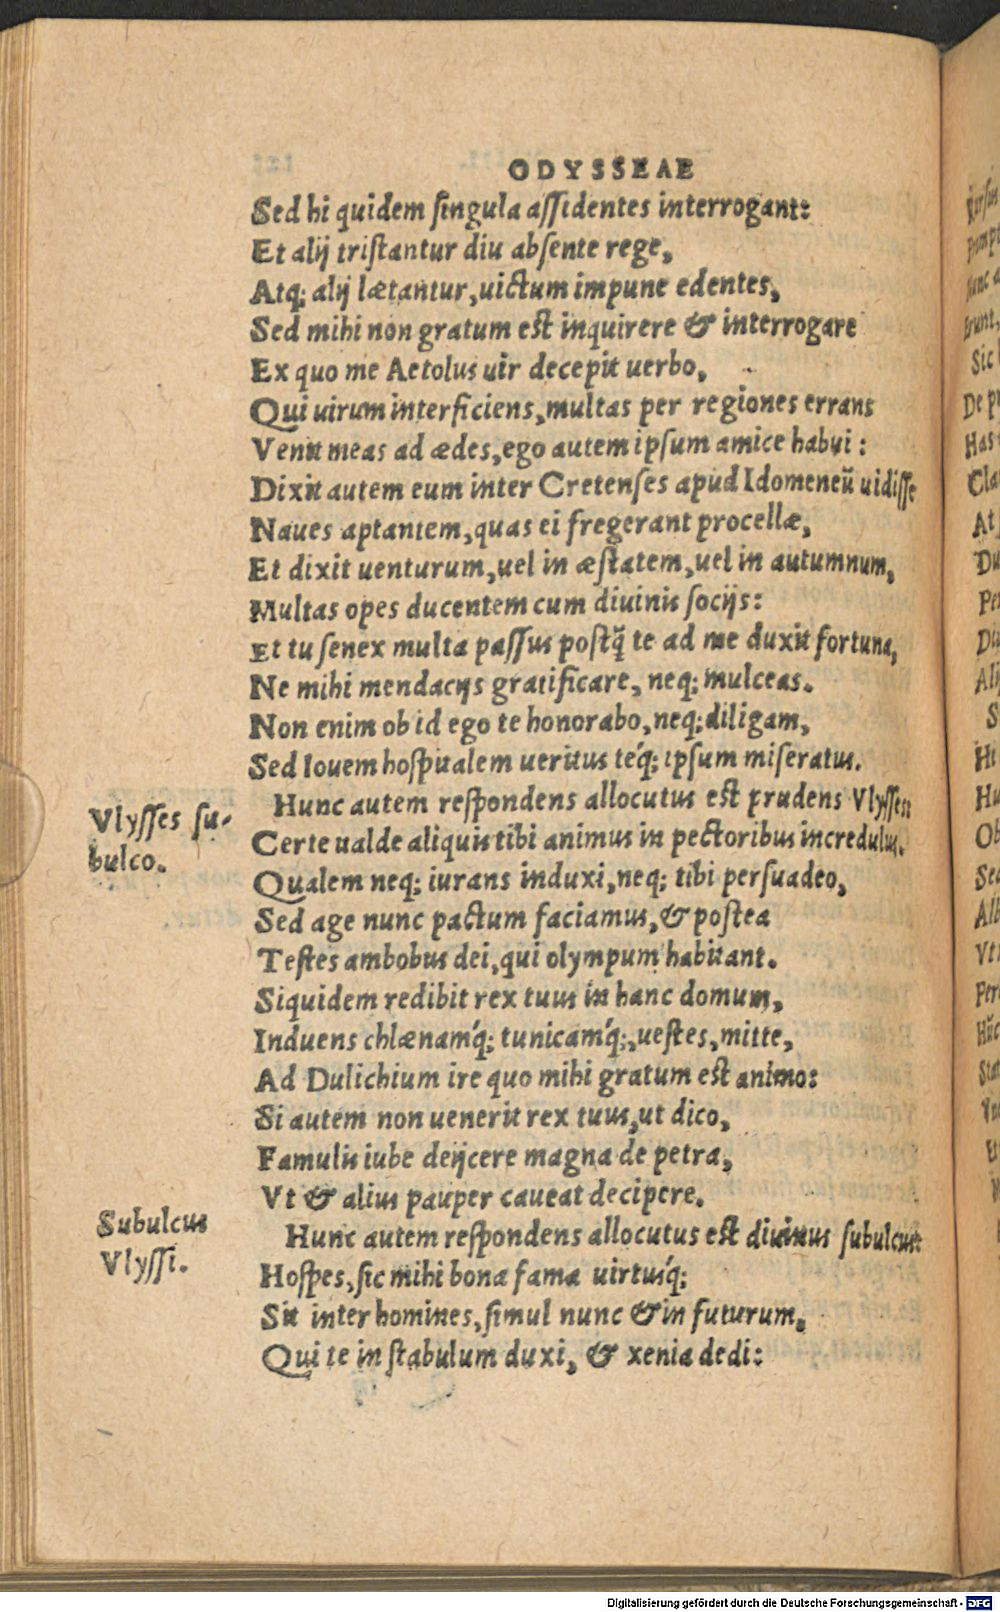 ODYSSEAE
Sed hi quidem singula assidentes interrogant:
Et alij tristantur diu absente rege,
Atq; alij lætantur, uictum impune edentes,
Sed mihi non gratum est inquirere & interrogare
Ex quo me Aetolus uir decepit uerbo,
Qui uirum interficiens, multas per regiones errans
Venit meas ad ædes, ego autem ipsum amice habui:
Dixit autem eum inter Cretenses apud Idomeneũ uidisse
Naues aptantem, quas ei fregerant procellæ,
Et dixit uenturum, uel in æstatem, uel in autumnum,
Multas opes ducentem cum diuinis socijs:
Et tu senex multa passus postq̃ te ad me duxit fortuna,
Ne mihi mendacijs gratificare, neq; mulceas.
Non enim ob id ego te honorabo, neq; diligam,
Sed Iouem hospitalem ueritus té q; ipsum miseratus.
Vlysses su-
bulco.
Hunc autem respondens allocutus est prudens Vlysses:
Certe ualde aliquis tibi animus in pectoribus incredulus.
Qualem neq; iurans induxi, neq; tibi persuadeo,
Sed age nunc pactum faciamus, & postea
Testes ambobus dei, qui olympum habitant.
Siquidem redibit rex tuus in hanc domum,
Induens chlænamq́; tunicamq́;, uestes, mitte,
Ad Dulichium ire quo mihi gratum est animo:
Si autem non uenerit rex tuus, ut dico,
Famulis iube deijcere magna de petra,
Vt & alius pauper caueat decipere.
Subulcus
Vlyssi.
Hunc autem respondens allocutus est diuinus subulcus:
Hospes, sic mihi bona fama uirtusq́;
Sit inter homines, simul nunc & in futurum,
Qui te in stabulum duxi, & xenia dedi:
Digitalisierung gefördert durch die Deutsche Forschungsgemeinschaft - DFG